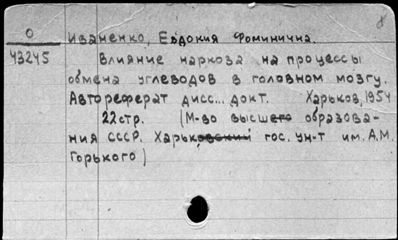 8
О Иваненко, Евдокия Фоминична.
43245 Влияние наркоза на процессы
обмена углеводов в головном мозгу.
Автореферат дисс... докт. Харьков, 1954
22стр. (М-во высшего образова-
ния СССР. Харьковский гос. ун-т им. А.М.
Горького)